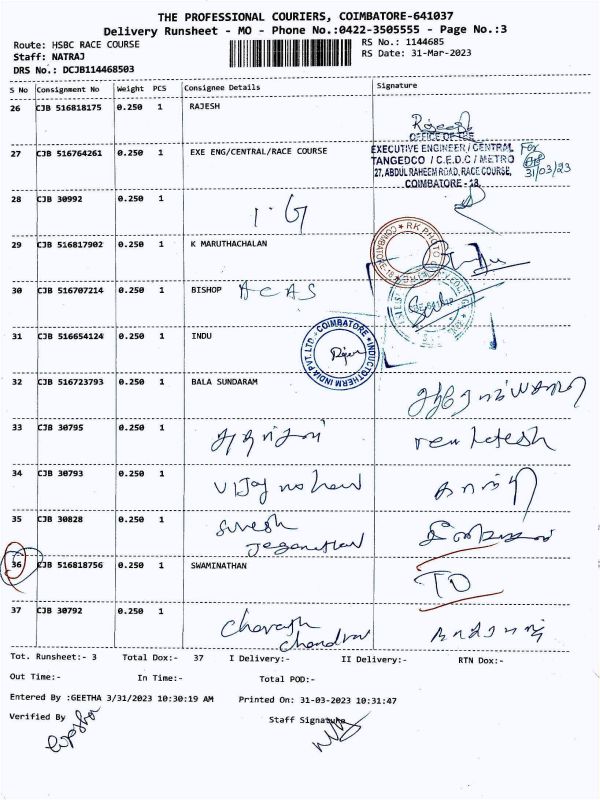 THE PROFESSIONAL COURIERS, COIMBATORE-641037
Delivery Runsheet - MO - Phone No.:0422-3505555 - Page No.:3
Route: HSBC RACE COURSE RS No.: 1144685
Staff: NATRAJ RS Date: 31-Mar-2023
DRS No.: DCJB114468503
S No Consignment No Weight PCS Consignee Details Signature
26 CJB 516818175 0.250 1 RAJESH
Rajesh
OFFICE OF THE
27 CJB 516764261 0.250 1 EXE ENG/CENTRAL/RACE COURSE EXECUTIVE ENGINEER / CENTRAL For
TANGEDCO / C.E.D.C / METRO
27, ABDUL RAHEEM ROAD, RACE COURSE, 31/03/23
COIMBATORE - 18.
28 CJB 30992 0.250 1 I.G
29 CJB 516817902 0.250 1 K MARUTHACHALAN RK PHOTO
30 CJB 516707214 0.250 1 BISHOP ACAS
31 CJB 516654124 0.250 1 INDU INDUCTOTHERM INDIA PVT. LTD COIMBATORE
32 CJB 516723793 0.250 1 BALA SUNDARAM
33 CJB 30795 0.250 1 venkatesh
34 CJB 30793 0.250 1 Vijay mohan
35 CJB 30828 0.250 1 Suresh
Jeganathan
36 CJB 516818756 0.250 1 SWAMINATHAN TD
37 CJB 30792 0.250 1 Chandran
Tot. Runsheet:- 3 Total Dox:- 37 I Delivery:- II Delivery:- RTN Dox:-
Out Time:- In Time:- Total POD:-
Entered By :GEETHA 3/31/2023 10:30:19 AM Printed On: 31-03-2023 10:31:47
Verified By Staff Signature